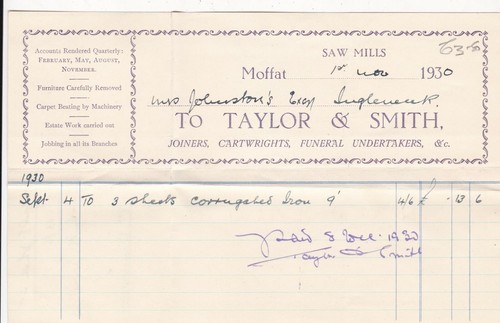 Accounts Rendered Quarterly:
February, May, August,
November.
Furniture Carefully Removed
Carpet Beating by Machinery
Estate Work carried out
Jobbing in all its Branches
SAW MILLS
63-8
Moffat 1st Nov 1930
Mrs Johnston's Exrs Ingleneuk.
TO TAYLOR & SMITH,
JOINERS, CARTWRIGHTS, FUNERAL UNDERTAKERS, &c.
1930
Sept. 4 To 3 sheets corrugated Iron 9' 4/6 £ - 13 6
Paid 8 Dec. 1930
Taylor & Smith